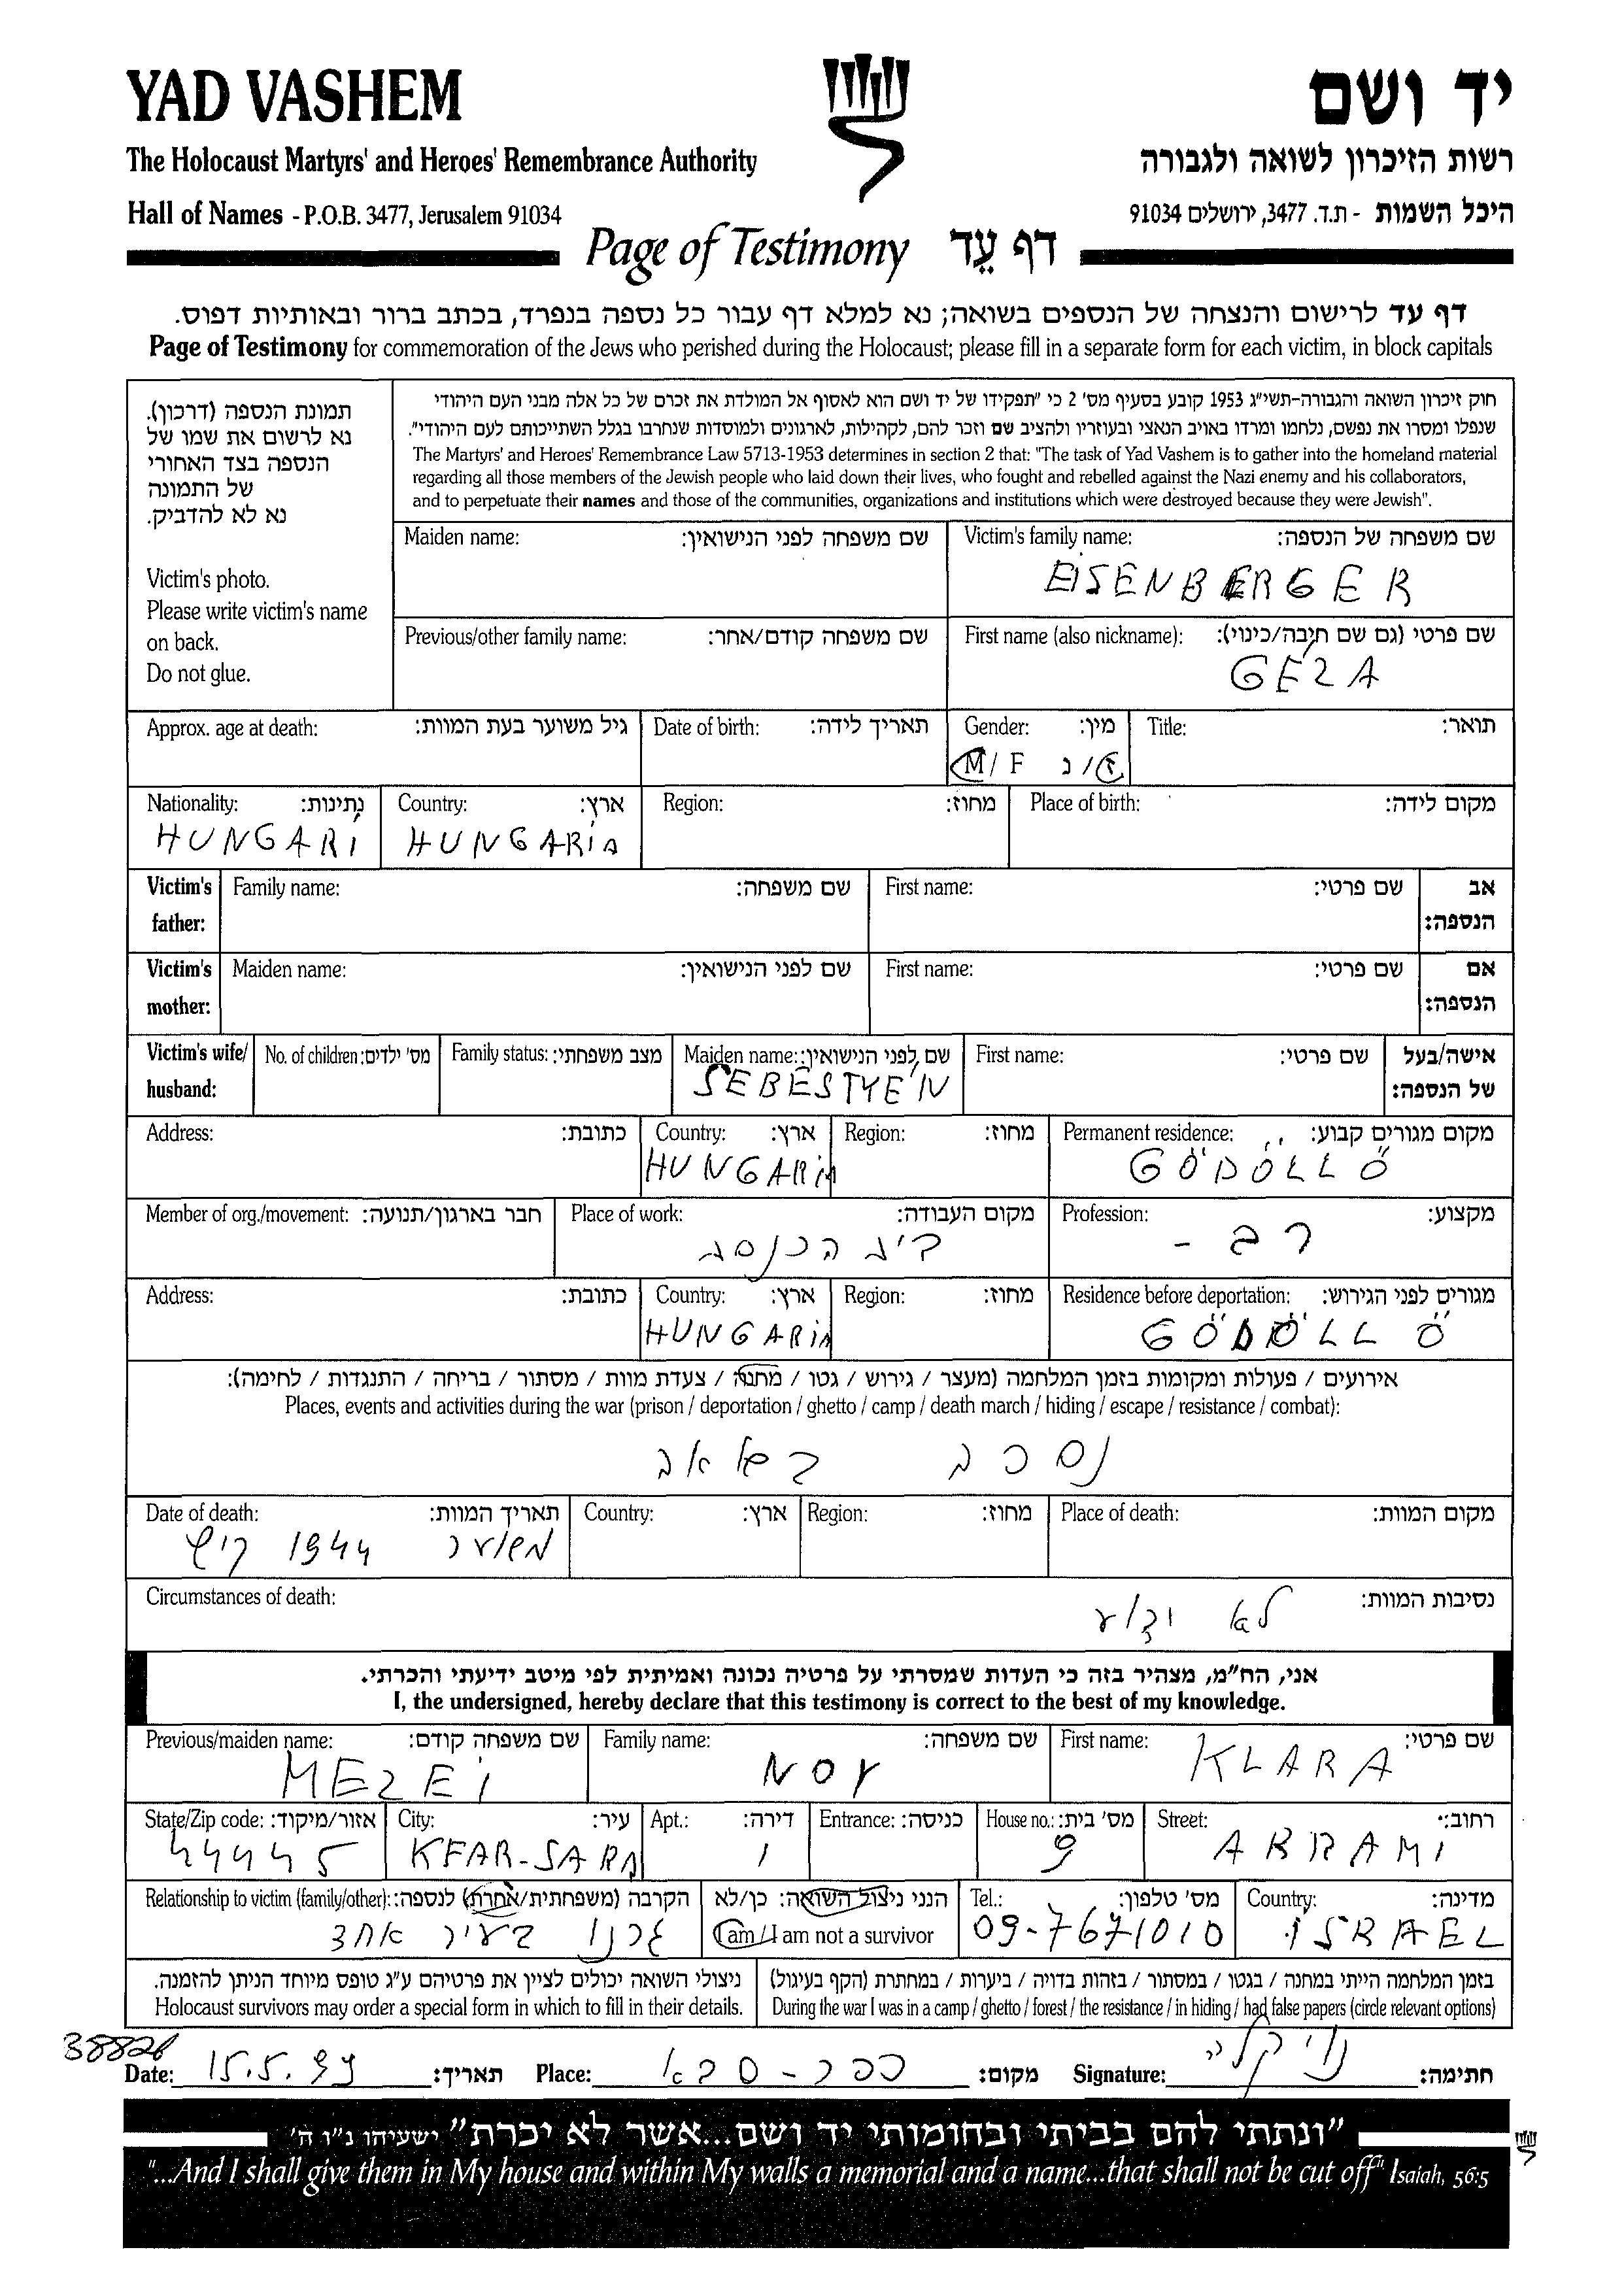 YAD VASHEM
יד ושם
The Holocaust Martyrs' and Heroes' Remembrance Authority
רשות הזיכרון לשואה ולגבורה
Hall of Names - P.O.B. 3477, Jerusalem 91034
היכל השמות - ת.ד. 3477, ירושלים 91034
Page of Testimony דף עֵד
דף עד לרישום והנצחה של הנספים בשואה; נא למלא דף עבור כל נספה בנפרד, בכתב ברור ובאותיות דפוס.
Page of Testimony for commemoration of the Jews who perished during the Holocaust; please fill in a separate form for each victim, in block capitals
תמונת הנספה (דרכון).
נא לרשום את שמו של
הנספה בצד האחורי
של התמונה
נא לא להדביק.
Victim's photo.
Please write victim's name
on back.
Do not glue.
חוק זיכרון השואה והגבורה-תשי"ג 1953 קובע בסעיף מס' 2 כי "תפקידו של יד ושם הוא לאסוף אל המולדת את זכרם של כל אלה מבני העם היהודי
שנפלו ומסרו את נפשם, נלחמו ומרדו באויב הנאצי ובעוזריו ולהציב שם וזכר להם, לקהילות, לארגונים ולמוסדות שנחרבו בגלל השתייכותם לעם היהודי".
The Martyrs' and Heroes' Remembrance Law 5713-1953 determines in section 2 that: "The task of Yad Vashem is to gather into the homeland material
regarding all those members of the Jewish people who laid down their lives, who fought and rebelled against the Nazi enemy and his collaborators,
and to perpetuate their names and those of the communities, organizations and institutions which were destroyed because they were Jewish".
Maiden name: שם משפחה לפני הנישואין:
Victim's family name: שם משפחה של הנספה:
EISENBERGER
Previous/other family name: שם משפחה קודם/אחר:
First name (also nickname): שם פרטי (גם שם חיבה/כינוי):
GEZA
Approx. age at death: גיל משוער בעת המוות:
Date of birth: תאריך לידה:
Gender: מין:
M / F ז / נ
Title: תואר:
Nationality: נתינות:
HUNGARI
Country: ארץ:
HUNGARIA
Region: מחוז:
Place of birth: מקום לידה:
Victim's father: Family name: שם משפחה: First name: שם פרטי: אב הנספה:
Victim's mother: Maiden name: שם לפני הנישואין: First name: שם פרטי: אם הנספה:
Victim's wife/ husband: No. of children: מס' ילדים: Family status: מצב משפחתי: Maiden name: שם לפני הנישואין: First name: שם פרטי: אישה/בעל של הנספה:
SEBESTYÉN
Address: כתובת: Country: ארץ: Region: מחוז: Permanent residence: מקום מגורים קבוע:
HUNGARIA GÖDÖLLŐ
Member of org./movement: חבר בארגון/תנועה: Place of work: מקום העבודה: Profession: מקצוע:
בית הכנסת
רב -
Address: כתובת: Country: ארץ: Region: מחוז: Residence before deportation: מגורים לפני הגירוש:
HUNGARIA GÖDÖLLŐ
אירועים / פעולות ומקומות בזמן המלחמה (מעצר / גירוש / גטו / מחנה / צעדת מוות / מסתור / בריחה / התנגדות / לחימה):
Places, events and activities during the war (prison / deportation / ghetto / camp / death march / hiding / escape / resistance / combat):
נספה בשואה
Date of death: תאריך המוות: Country: ארץ: Region: מחוז: Place of death: מקום המוות:
משוער 1944 קיץ
Circumstances of death: נסיבות המוות:
לא ידוע
אני, הח"מ, מצהיר בזה כי העדות שמסרתי על פרטיה נכונה ואמיתית לפי מיטב ידיעתי והכרתי.
I, the undersigned, hereby declare that this testimony is correct to the best of my knowledge.
Previous/maiden name: שם משפחה קודם: Family name: שם משפחה: First name: שם פרטי:
MEZEI NOY KLARA
State/Zip code: אזור/מיקוד: City: עיר: Apt.: דירה: Entrance: כניסה: House no.: מס' בית: Street: רחוב:
44445 KFAR-SABA 1 9 AKRAMI
Relationship to victim (family/other): הקרבה (משפחתית/אחרת) לנספה: הנני ניצול השואה: כן/לא Tel.: מס' טלפון: Country: מדינה:
גרנו בעיר אחת
I am / I am not a survivor
09-7671010
ISRAEL
ניצולי השואה יכולים לציין את פרטיהם ע"ג טופס מיוחד הניתן להזמנה.
Holocaust survivors may order a special form in which to fill in their details.
בזמן המלחמה הייתי במחנה / בגטו / במסתור / בזהות בדויה / ביערות / במחתרת (הקף בעיגול)
During the war I was in a camp / ghetto / forest / the resistance / in hiding / had false papers (circle relevant options)
Date: 15.5.99 תאריך: Place: כפר-סבא מקום: Signature: נוי קלרה חתימה:
"ונתתי להם בביתי ובחומותי יד ושם...אשר לא יכרת" ישעיהו נ"ו ה'
"...And I shall give them in My house and within My walls a memorial and a name...that shall not be cut off" Isaiah, 56:5